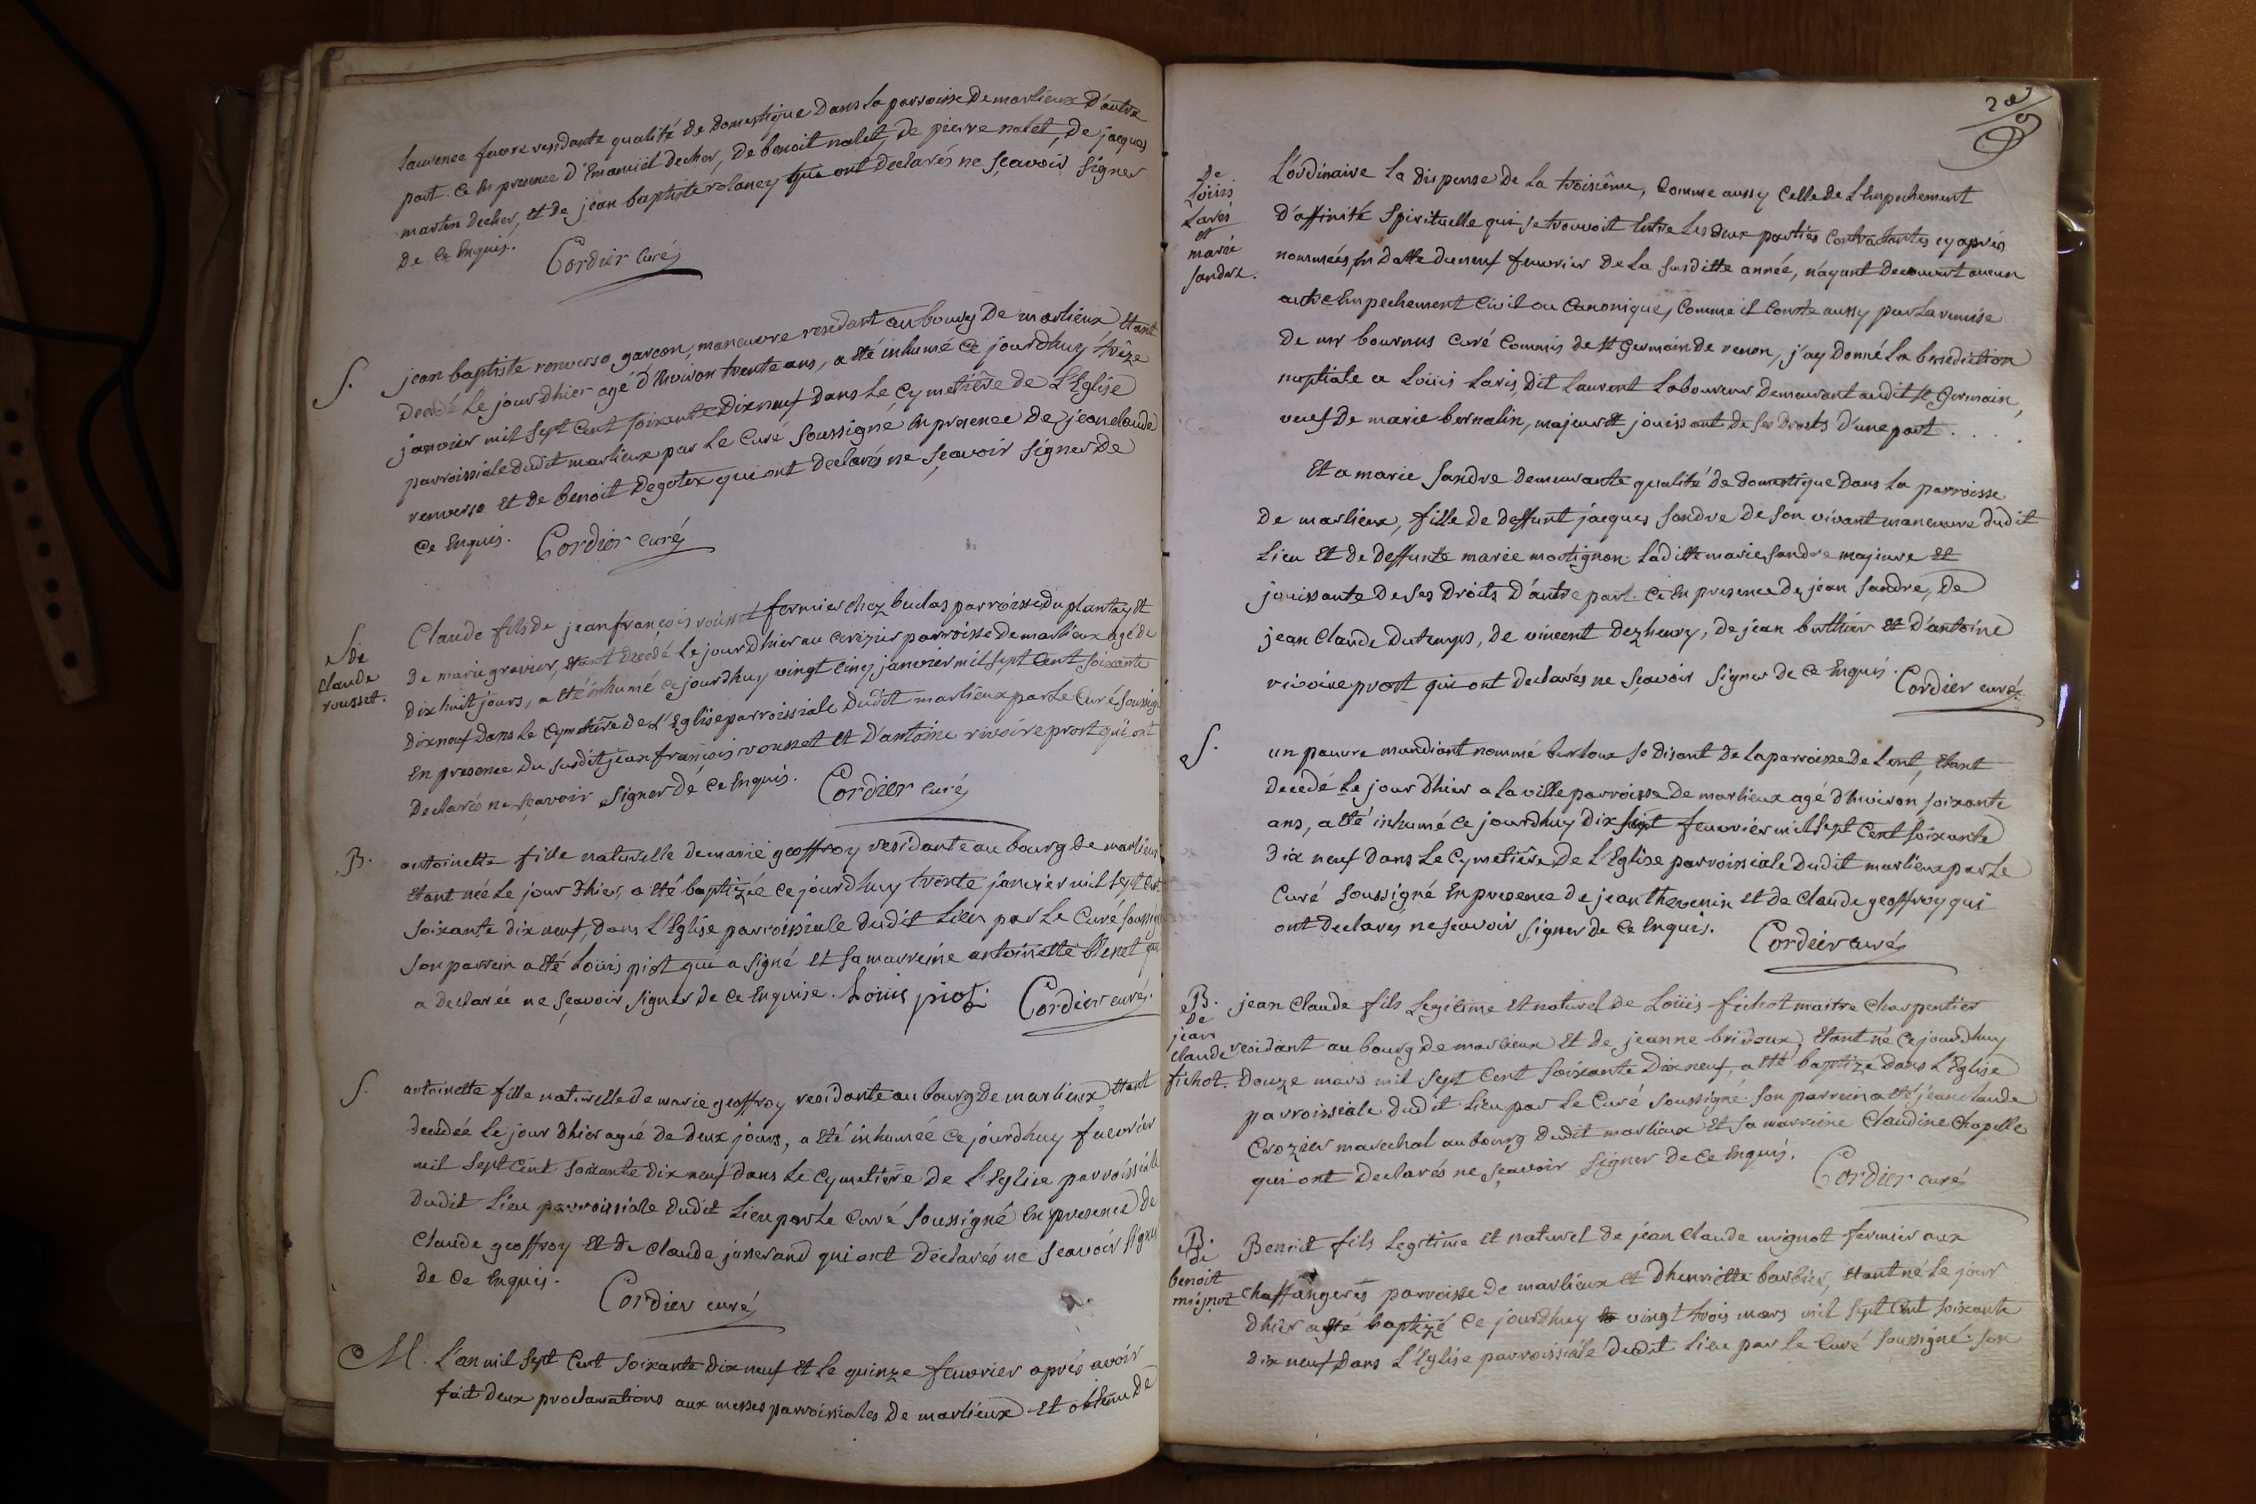 laurence favre residante qualité de domestique dans la parroisse de marlieux d'autre
part. ce en presence d'Emanuël decher, de benoit nalet, de pierre nalet, de jacques
martin decher, et de jean baptiste rolancy qui ont declarés ne sçavoir signer
de ce Enquis. Cordier curé
S. jean baptiste renverse garcon, maneuvre residant au bourg de marlieux etant
decedé le jour dhier agé d'Environ trente ans, a été inhumé ce jourdhuy trèze
janvier mil sept cent soixante dix neuf dans le cymetière de L'Eglise
parroissiale dudit marlieux par le curé soussigné en presence de jean claude
renverse et de benoit degoter qui ont declarés ne sçavoir signer de
ce Enquis. Cordier curé
S. de claude rousset.
Claude fils de jean françois rousset fermier chez buclas parroisse du plantay et
de marie gravier, etant decedé le jour dhier au cerizier parroisse de marlieux agé de
dix huit jours, a été inhumé ce jourdhuy vingt cinq janvier mil sept cent soixante
dix neuf dans le cymetière de L'Eglise parroissiale dudit marlieux par le curé soussig
en presence du susdit jean françois rousset et d'antoine rivoire prost qui ont
declarés ne sçavoir signer de ce Enquis. Cordier curé
B. antoinette fille naturelle de marie geoffroy residante au bourg de marlieux
etant née le jour dhier, a été baptizée ce jourdhuy trente janvier mil sept cent
soixante dix neuf, dans L'Eglise parroissiale dudit lieu par le curé soussig
son parrein a été Loüis piot qui a signé et sa marreine antoinette blenet qui
a declarée ne sçavoir signer de ce Enquise. Louis piot. Cordier curé.
S. antoinette fille naturelle de marie geoffroy residante au bourg de marlieux etant
decedée le jour dhier agée de deux jours, a été inhumée ce jourdhuy fuevrier
mil sept cent soixante dix neuf dans le cymetière de L'Eglise parroissiale
dudit lieu parroissiale dudit lieu par le curé soussigné en presence de
claude geoffroy et de claude janerand qui ont declarés ne sçavoir signer
de ce Enquis. Cordier curé
M. L'an mil sept cent soixante dix neuf et le quinze feuvrier aprés avoir
fait deux proclamations aux messes parroissiales de marlieux et obtenu de
de Loüis Laris et marie sandre.
L'ordinaire la dispense de la troisième, comme aussy celle de L'Empechement
d'affinité spirituelle qui se trouvoit Entre les deux parties contractantes cy aprés
nommées en datte du neuf feuvrier de la susditte année, n'ayant decouvert aucun
autre Empechement civil ou canonique, comme il conste aussy par la remise
de mr bournus curé commis de st germain de renon, j'ay donné la benediction
nuptiale a Loüis Laris, dit Laurent Laboureur demeurant audit st germain,
veuf de marie bernalin, majeur et jouissant de ses droits d'une part . . . .
Et a marie sandre demeurante qualité de domestique dans la parroisse
de marlieux, fille de deffunt jacques sandre de son vivant maneuvre dudit
lieu et de deffunte marie martignon. Laditte marie sandre majeure et
jouissante de ses droits d'autre part. ce en presence de jean sandre, de
jean claude dutemps, de vincent dezhenry, de jean buthier et d'antoine
rivoire prost qui ont declarés ne sçavoir signer de ce Enquis. Cordier curé
S. un pauvre mandiant nommé burloux se disant de la parroisse de Lent, etant
decedé le jour dhier a la ville parroisse de marlieux agé d'Environ soixante
ans, a été inhumé ce jourdhuy dix sept feuvrier mil sept cent soixante
dix neuf dans le cymetière de L'Eglise parroissiale dudit marlieux par le
curé soussigné En presence de jean thevenin et de claude geoffroy qui
ont declarés ne sçavoir signer de ce Enquis. Cordier curé
B. de jean claude fichot.
jean claude fils legitime et naturel de Loüis fichot maitre charpentier
residant au bourg de marlieux et de jeanne bridoux, etant né ce jourdhuy
douze mars mil sept cent soixante dix neuf, a été baptizé dans L'Eglise
parroissiale dudit lieu par le curé soussigné son parrein a été jean claude
crozier marechal au bourg dudit marlieux et sa marreine claudine chapelle
qui ont declarés ne sçavoir signer de ce Enquis. Cordier curé
B. de benoit mignot
Benoit fils legitime et naturel de jean claude mignot fermier aux
chaffangeres parroisse de marlieux et dhenriette barbier, etant né le jour
dhier a été baptizé ce jourdhuy vingt trois mars mil sept cent soixante
dix neuf dans L'Eglise parroissiale dudit lieu par le curé soussigné. son